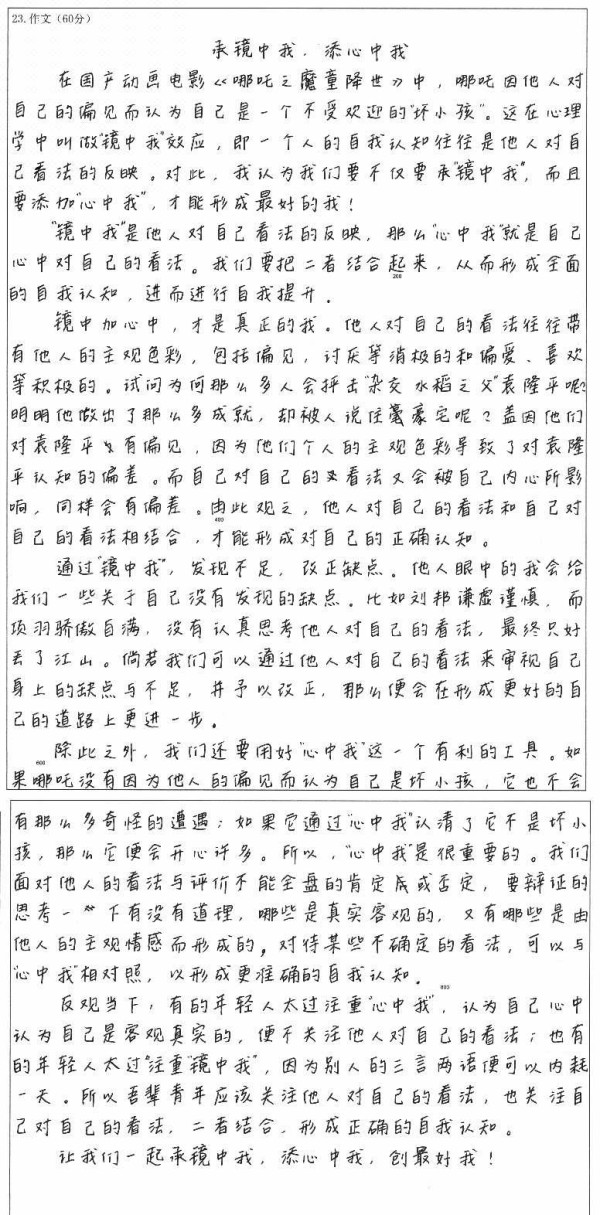 23.作文（60分）
承镜中我，添心中我
在国产动画电影《哪吒之魔童降世》中，哪吒因他人对
自己的偏见而认为自己是一个不受欢迎的"坏小孩"。这在心理
学中叫做"镜中我"效应，即一个人的自我认知往往是他人对自
己看法的反映。对此，我认为我们要不仅要承"镜中我"，而且
要添加"心中我"，才能形成最好的我！
"镜中我"是他人对自己看法的反映，那么"心中我"就是自己
心中对自己的看法。我们要把二者结合起来，从而形成全面
200
的自我认知，进而进行自我提升。
镜中加心中，才是真正的我。他人对自己的看法往往带
有他人的主观色彩，包括偏见，讨厌等消极的和偏爱、喜欢
等积极的。试问为何那么多人会抨击"杂交水稻之父"袁隆平呢？
明明他做出了那么多成就，却被人说住豪宅呢？盖因他们
对袁隆平有偏见，因为他们个人的主观色彩导致了对袁隆
平认知的偏差。而自己对自己的看法又会被自己内心所影
响，同样会有偏差。由此观之，他人对自己的看法和自己对
400
自己的看法相结合，才能形成对自己的正确认知。
通过"镜中我"，发现不足，改正缺点。他人眼中的我会给
我们一些关于自己没有发现的缺点。比如刘邦谦虚谨慎，而
项羽骄傲自满，没有认真思考他人对自己的看法，最终只好
丢了江山。倘若我们可以通过他人对自己的看法来审视自己
身上的缺点与不足，并予以改正，那么便会在形成更好的自
己的道路上更进一步。
除此之外，我们还要用好"心中我"这一个有利的工具。如
600
果哪吒没有因为他人的偏见而认为自己是坏小孩，它也不会
有那么多奇怪的遭遇；如果它通过"心中我"认清了它不是坏小
孩，那么它便会开心许多。所以，"心中我"是很重要的。我们
面对他人的看法与评价不能全盘的肯定或否定，要辩证的
思考一下有没有道理，哪些是真实客观的，又有哪些是由
他人的主观情感而形成的。对待某些不确定的看法，可以与
"心中我"相对照，以形成更准确的自我认知。
800
反观当下，有的年轻人太过注重"心中我"，认为自己心中
认为自己是客观真实的，便不关注他人对自己的看法；也有
的年轻人太过"注重"镜中我"，因为别人的三言两语便可以内耗
一天。所以吾辈青年应该关注他人对自己的看法，也关注自
己对自己的看法，二者结合，形成正确的自我认知。
让我们一起承镜中我，添心中我，创最好我！